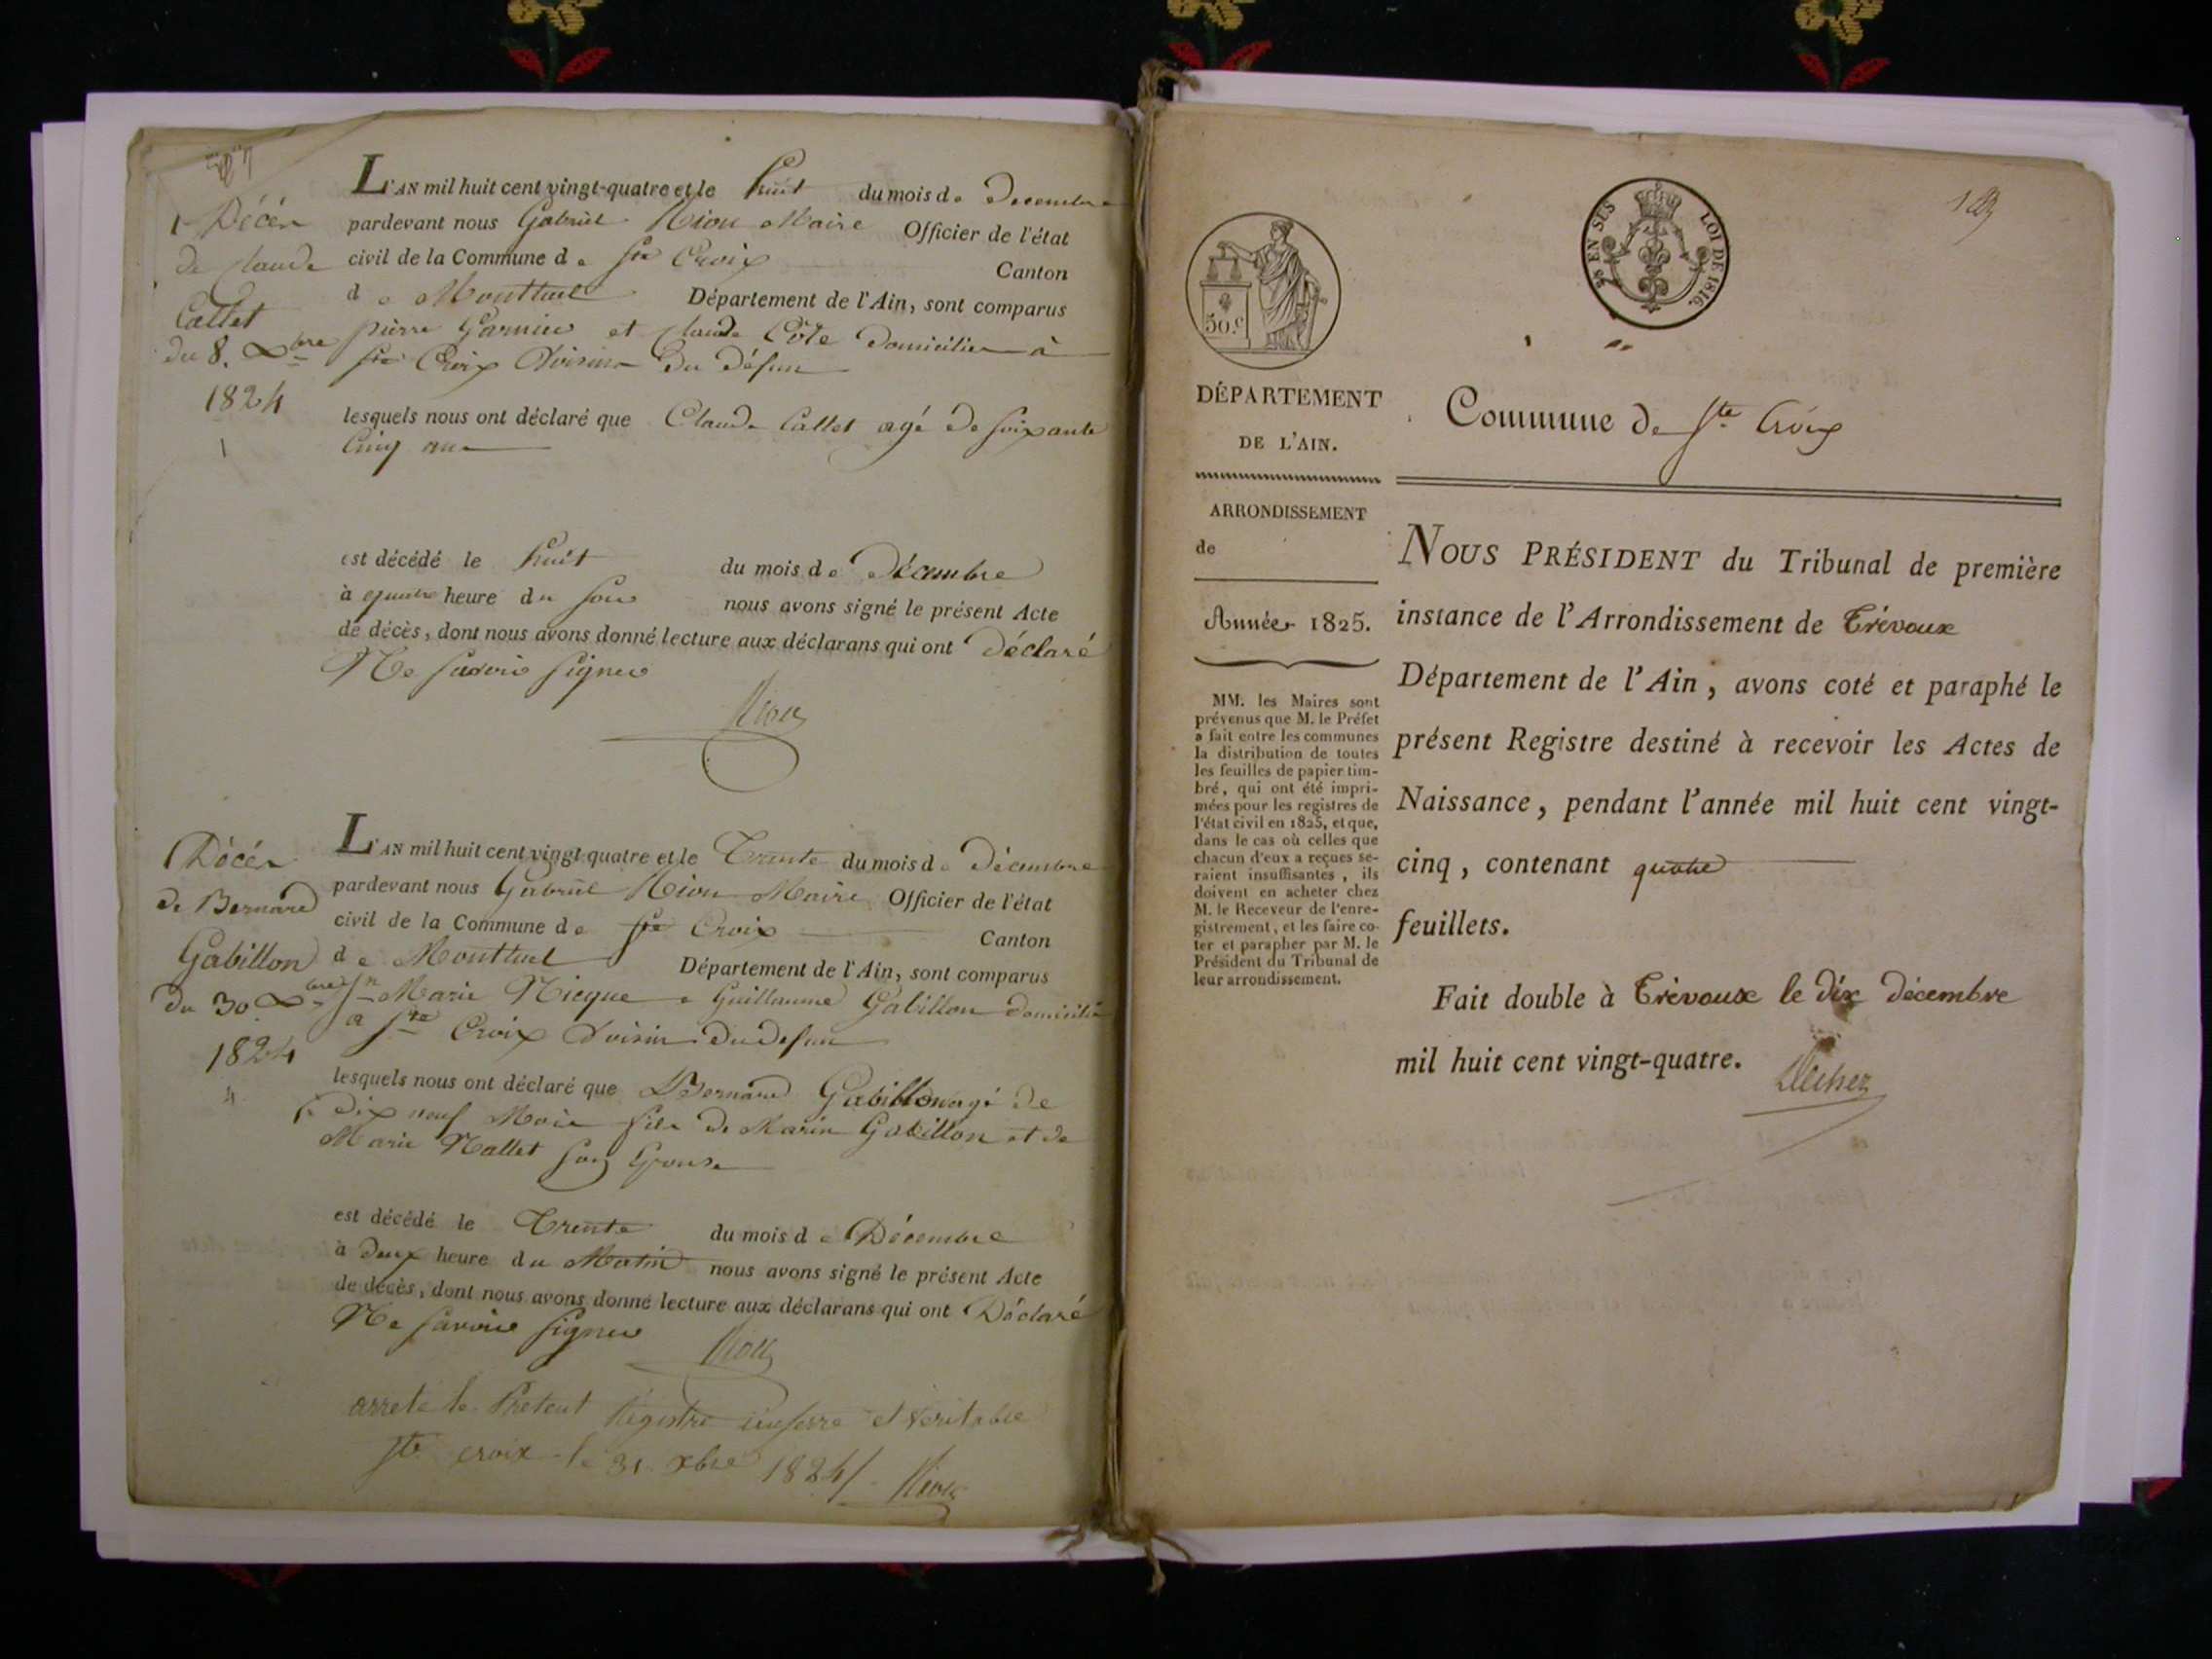 Décès
de Claude
Callet
du 8. Xbre
1824
L'AN mil huit cent vingt-quatre et le huit du mois de Decembre
pardevant nous Gabriel Niou Maire Officier de l'état
civil de la Commune de Ste Croix Canton
de Montluel Département de l'Ain, sont comparus
pierre Garnier et Claude Côte domicilies à
Ste Croix Voisins du défun
lesquels nous ont déclaré que Claude Callet agé de soixante
Cinq ans
est décédé le huit du mois de Décembre
à quatre heure du soir nous avons signé le présent Acte
de décès, dont nous avons donné lecture aux déclarans qui ont Déclaré
Ne savoir signer
Niou
Décès
de Bernard
Gabillon
du 30 Xbre
1824
L'AN mil huit cent vingt quatre et le Trente du mois de Décembre
pardevant nous Gabriel Niou Maire Officier de l'état
civil de la Commune de Ste Croix Canton
de Montluel Département de l'Ain, sont comparus
Marie Guillaume Gabillon domicilié
a Ste Croix Voisin du defun
lesquels nous ont déclaré que Bernard Gabillon agé de
dix neuf Mois fils de Marin Gabillon et de
Marie Nallet son Epouse
est décédé le Trente du mois de Décembre
à deux heure du Matin nous avons signé le présent Acte
de décès, dont nous avons donné lecture aux déclarans qui ont Déclaré
Ne savoir signer
Niou
arreté le Present Registre et veritable
Ste croix le 31 xbre 1824 Niou
EN SUS
LOI DE 1816.
50.c
DÉPARTEMENT
DE L'AIN.
ARRONDISSEMENT
de
Année 1825.
MM. les Maires sont
prévenus que M. le Préfet
a fait entre les communes
la distribution de toutes
les feuilles de papier tim-
bré, qui ont été impri-
mées pour les registres de
l'état civil en 1825, et que,
dans le cas où celles que
chacun d'eux a reçues se-
raient insuffisantes, ils
doivent en acheter chez
M. le Receveur de l'enre-
gistrement, et les faire co-
ter et parapher par M. le
Président du Tribunal de
leur arrondissement.
Commune de Ste Croix
NOUS PRÉSIDENT du Tribunal de première
instance de l'Arrondissement de Trévoux
Département de l'Ain, avons coté et paraphé le
présent Registre destiné à recevoir les Actes de
Naissance, pendant l'année mil huit cent vingt-
cinq, contenant quatre
feuillets.
Fait double à Trévoux le dix décembre
mil huit cent vingt-quatre.